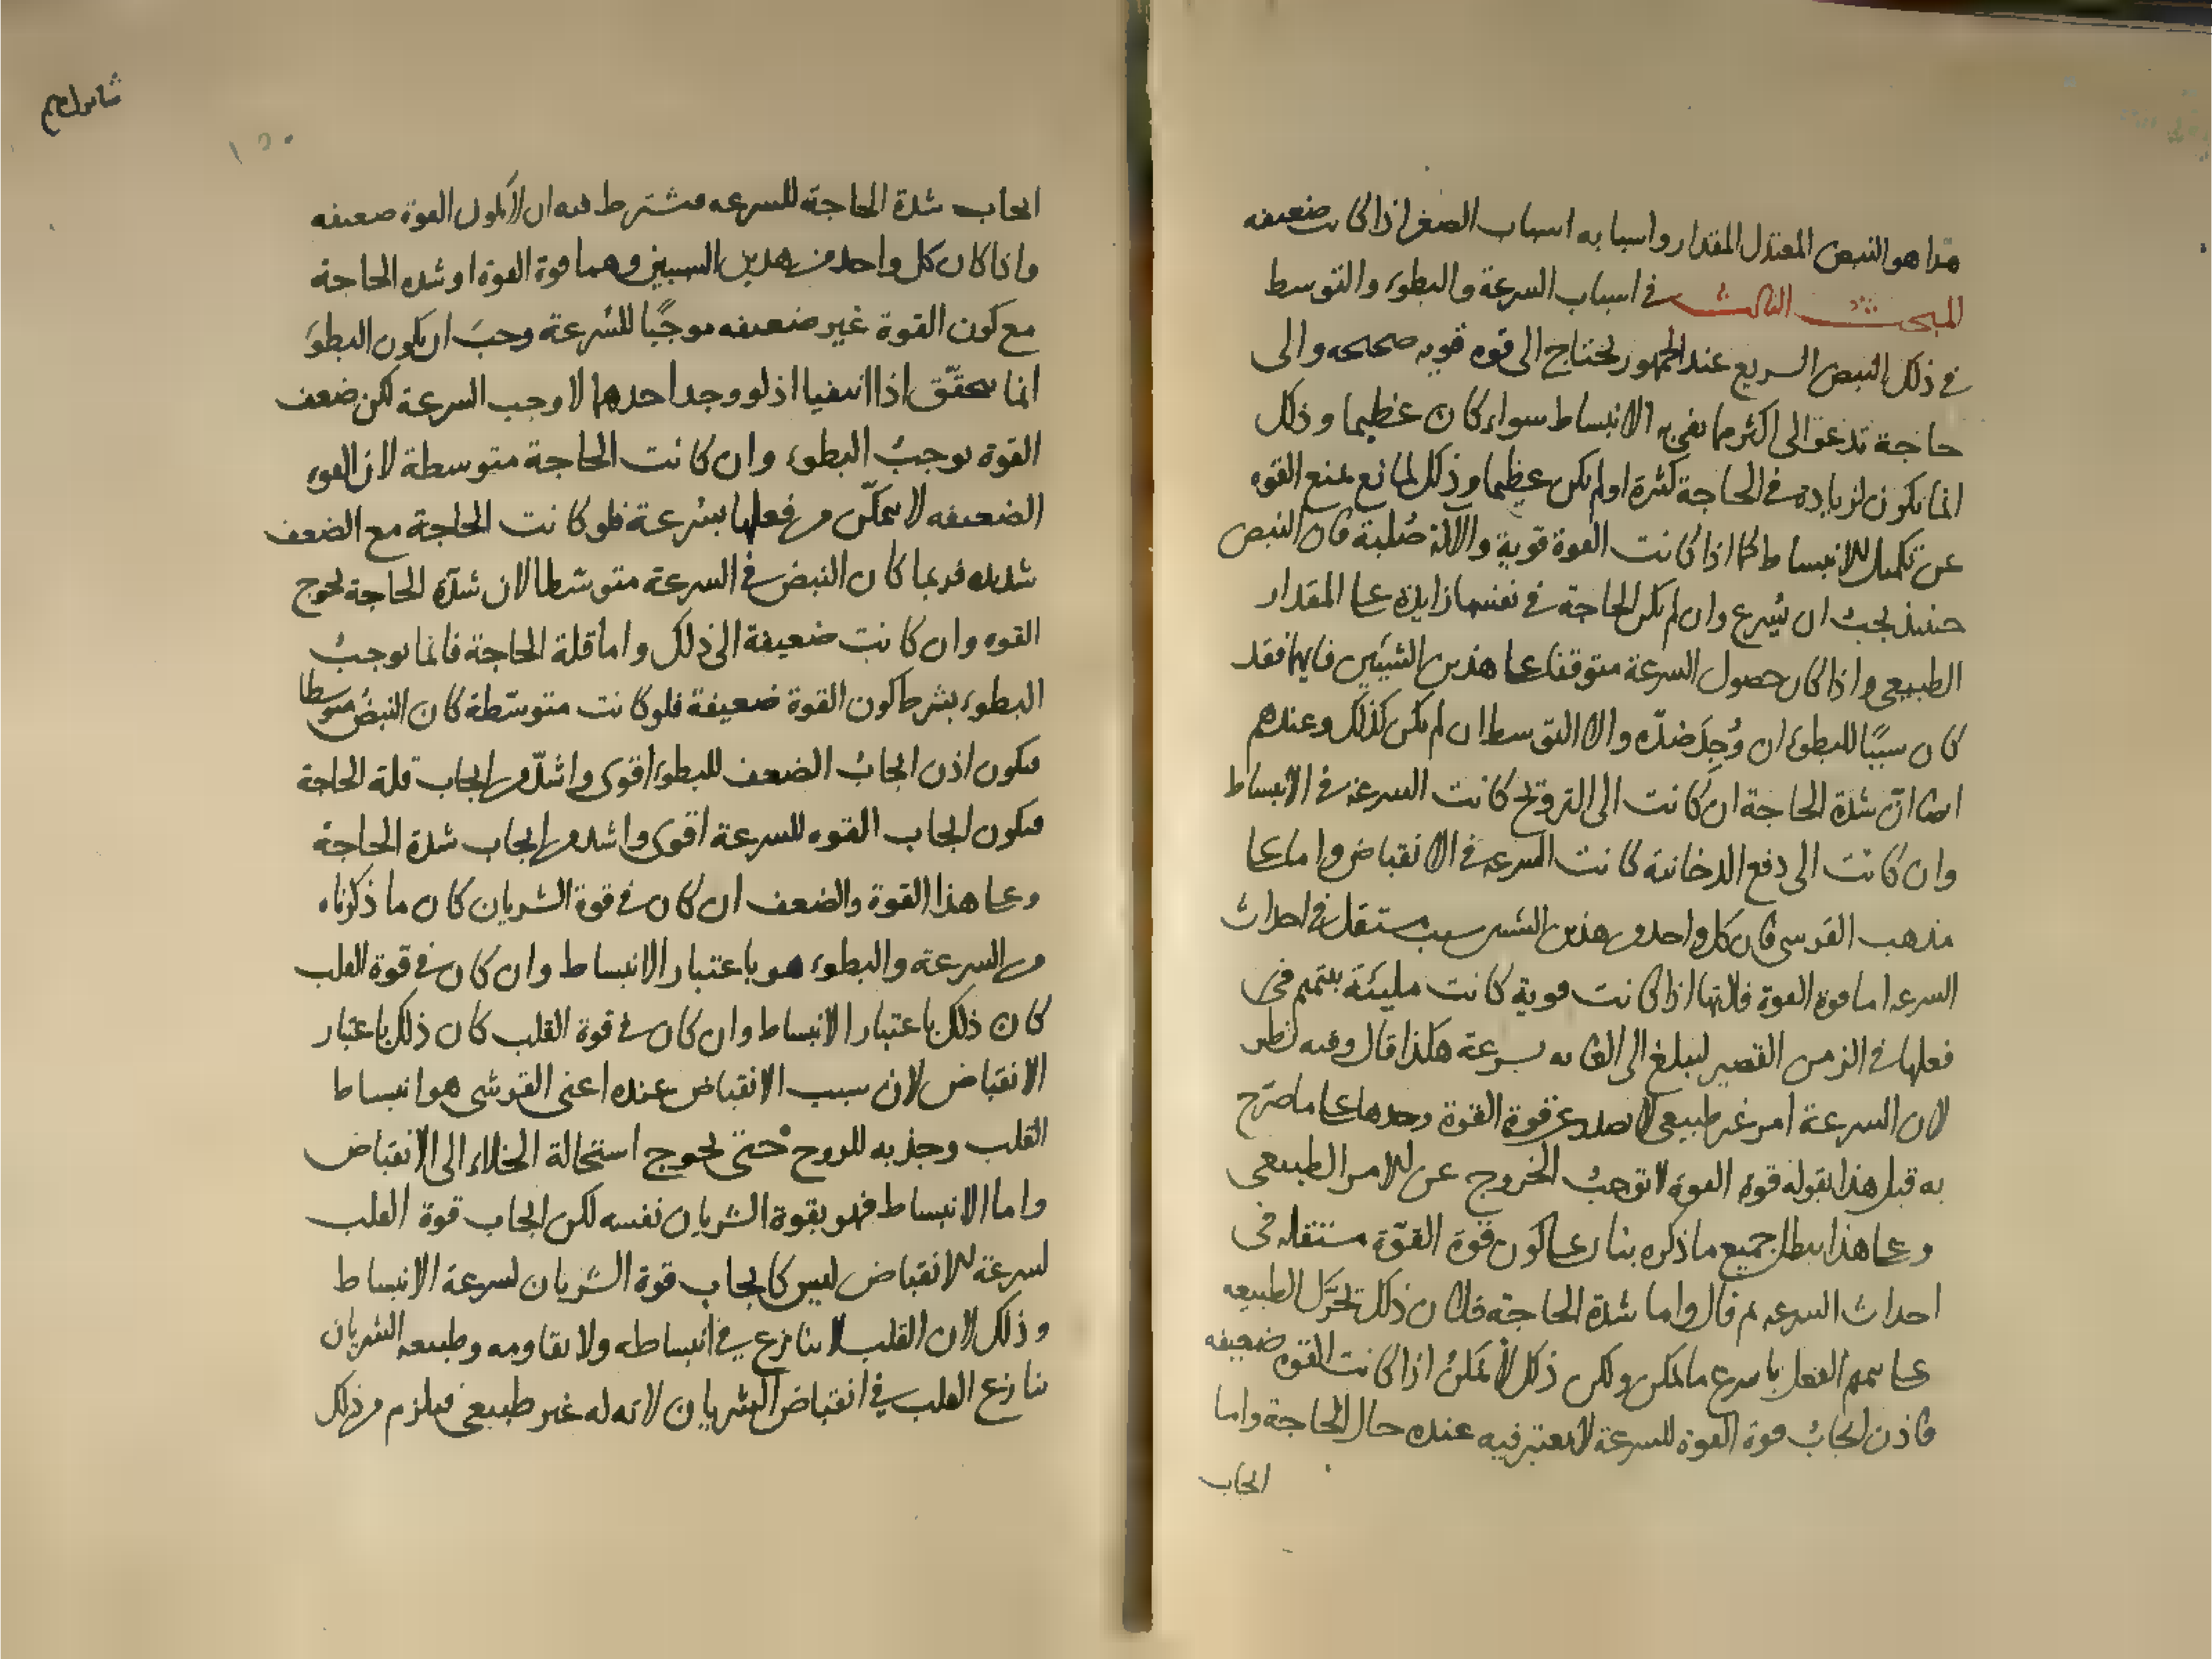 هذا هو النبض المعتدل المقدار واسبابه اسباب الصغر اذا كانت ضعيفه
المبحث الثالث في اسباب السرعة والبطوء والتوسط
في ذلك النبض السريع عند الجمهور يحتاج الى قوه قويه صحيحه والى
حاجة تدعو الى اكثر مما يفى به الانبساط سواء كان عظيما وذلك
انما يكون لزيادة في الحاجة كثرة او لم يكن عظيما وذلك لمانع يمنع القوه
عن تكميل الانبساط كما اذا كانت القوة قوية والالة صُلبة فان النبض
حينئذ يجبُ ان يُسرع وان لم يكن الحاجة في نفسها زايدة على المقدار
الطبيعى واذا كان حصول السرعة متوقفا على هذين الشيئين فايهما فقد
كان سببًا للبطوء ان وُجِدَ ضدّه والا التوسط ان لم يكن كذلك وعندهم
ايضا انّ شدة الحاجة ان كانت الى الترويح كانت السرعة في الانبساط
وان كانت الى دفع الدخانية كانت السرعه في الانقباض واما على
مذهب القرشى فان كل واحد من هذين الشيئين سبب مستقل في احداث
السرعه اما قوة القوة فلانها اذا كانت قوية كانت مليئة بتتميم
فعلها في الزمن القصير ليبلغ الى الغايه بسرعة هكذا قال وفيه نظر
لان السرعة امر غير طبيعى لا يصدر عن قوة القوة وحدها على ما صرّح
به قبل هذا بقوله قوة القوة لا توجبُ الخروج عن الامر الطبيعى
وعلى هذا يبطل جميع ما ذكره بناء على كون قوة القوّة مستقله فى
احداث السرعه ثم قال واما شدة الحاجة فلان ذلك يحرّك الطبيعه
على تتميم الفعل باسرع ما يمكن ولكن ذلك لا يمكنُ اذا كانت القوه ضعيفه
فاذن ايجابُ قوة القوة للسرعة لا يعتبر فيه عنده حال الحاجة واما
ايجاب
١٥٠
ايجاب شدة الحاجة للسرعه فيشترط فيه ان لا يكون القوة ضعيفه
واذا كان كل واحد من هذين السببين وهما قوة القوة او شده الحاجة
مع كون القوة غير ضعيفه موجبًا للسرعة وجبَ ان يكون البطوءَ
انما يتحقّق اذا انتفيا اذ لو وجد احدهما لاوجب السرعة لكن ضعف
القوة يوجبُ البطوء وان كانت الحاجة متوسطة لان القوه
الضعيفه لا يتمكّن من فعلها بسُرعة فلو كانت الحاجة مع الضعف
شديده فربما كان النبض في السرعة متوسّطا لان شدّة الحاجة تحوج
القوه وان كانت ضعيفة الى ذلك واما قلة الحاجة فانما توجبُ
البطوء بشرط كون القوة ضعيفة فلو كانت متوسّطة كان النبضُ متوسطا
فيكون اذن ايجابُ الضعف للبطوء اقوى واشدّ من ايجاب قلة الحاجة
فيكون ايجاب القوه للسرعة اقوى واشد من ايجاب شدة الحاجة
وعلى هذا القوة والضعف ان كان في قوة الشريان كان ما ذكرناه
من السرعة والبطوء هو باعتبار الانبساط وان كان في قوة القلب
كان ذلك باعتبار الانبساط وان كان في قوة القلب كان ذلك باعتبار
الانقباض لان سبب الانقباض عنده اعنى القرشى هو انبساط
القلب وجذبه للروح حتى يحوج استحالة الخلاء الى الانقباض
واما الانبساط فهو بقوة الشريان نفسه لكن ايجاب قوة القلب
لسرعة الانقباض ليس كايجاب قوة الشريان لسرعة الانبساط
وذلك لان القلب لا ينازع في انبساطه ولا يقاومه وطبيعه الشريان
ينازع القلب في انقباض الشريان لانه له غير طبيعى فيلزم من ذلك